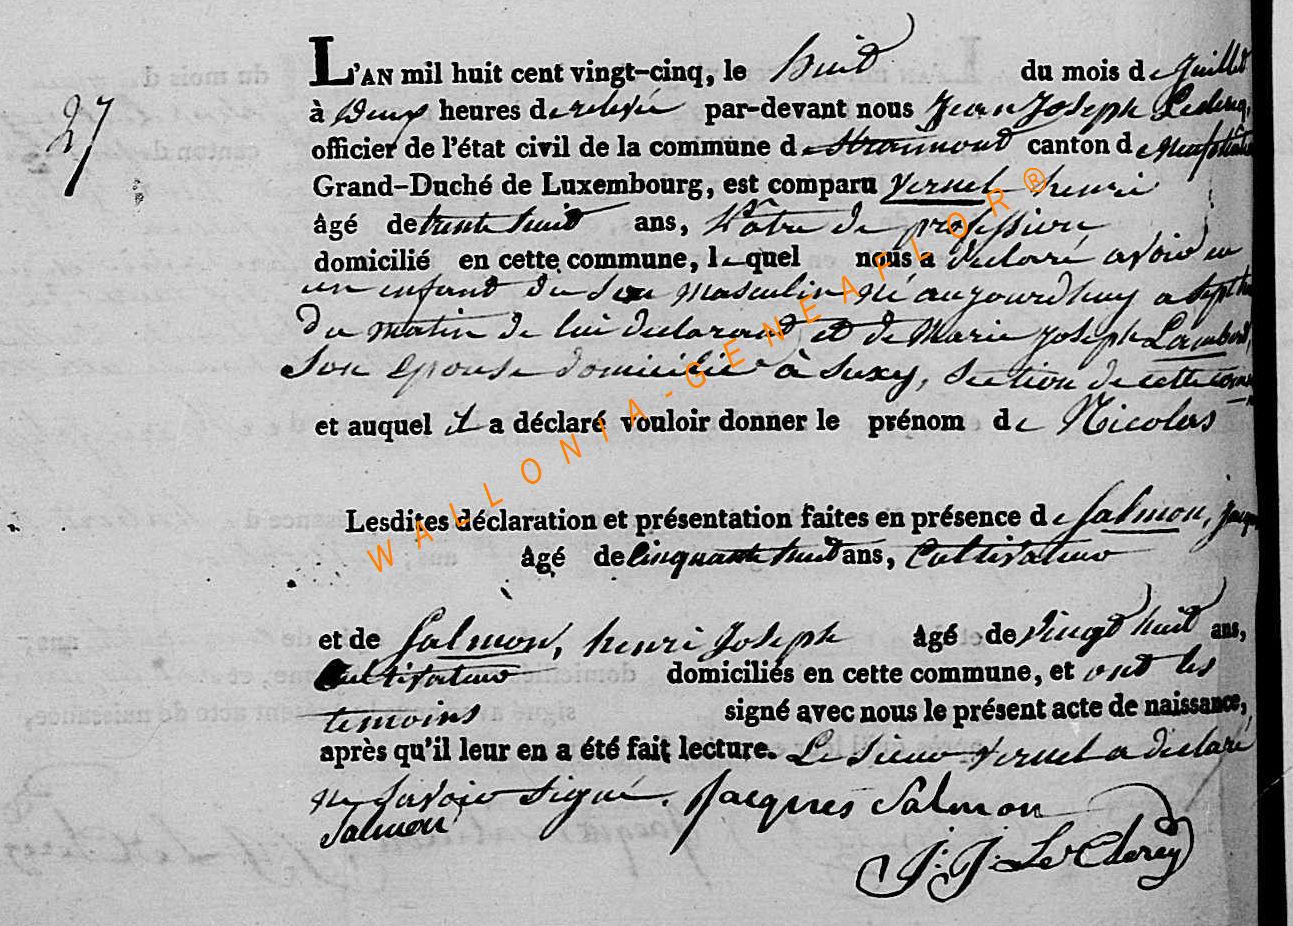 27
L'AN mil huit cent vingt-cinq, le huit du mois de Juillet
à deux heures de relevée par-devant nous Jean Joseph Leclercq,
officier de l'état civil de la commune de Straimont canton de Neufchâteau
Grand-Duché de Luxembourg, est comparu Vernel henri
âgé de trente huit ans, de profession
domicilié en cette commune, lequel nous a déclaré avoir eu
un enfant du Sexe masculin né aujourdhuy a Sept h
du matin de lui declarant et de Marie joseph Lambert,
Son epouse domicilié à Suxy, Section de cette com
et auquel il a déclaré vouloir donner le prénom de Nicolas
Lesdites déclaration et présentation faites en présence de Salmon, jacq
âgé de Cinquante huit ans, Cultivateur
et de Salmon, henri Joseph âgé de vingt huit ans,
Cultivateur domiciliés en cette commune, et ont les
temoins signé avec nous le présent acte de naissance,
après qu'il leur en a été fait lecture. Le Sieur Vernel a declaré
ne Savoir Signé. Jacques Salmon
Salmon
J. J. Le Clercq
WALLONIA-GENEAFLOR®